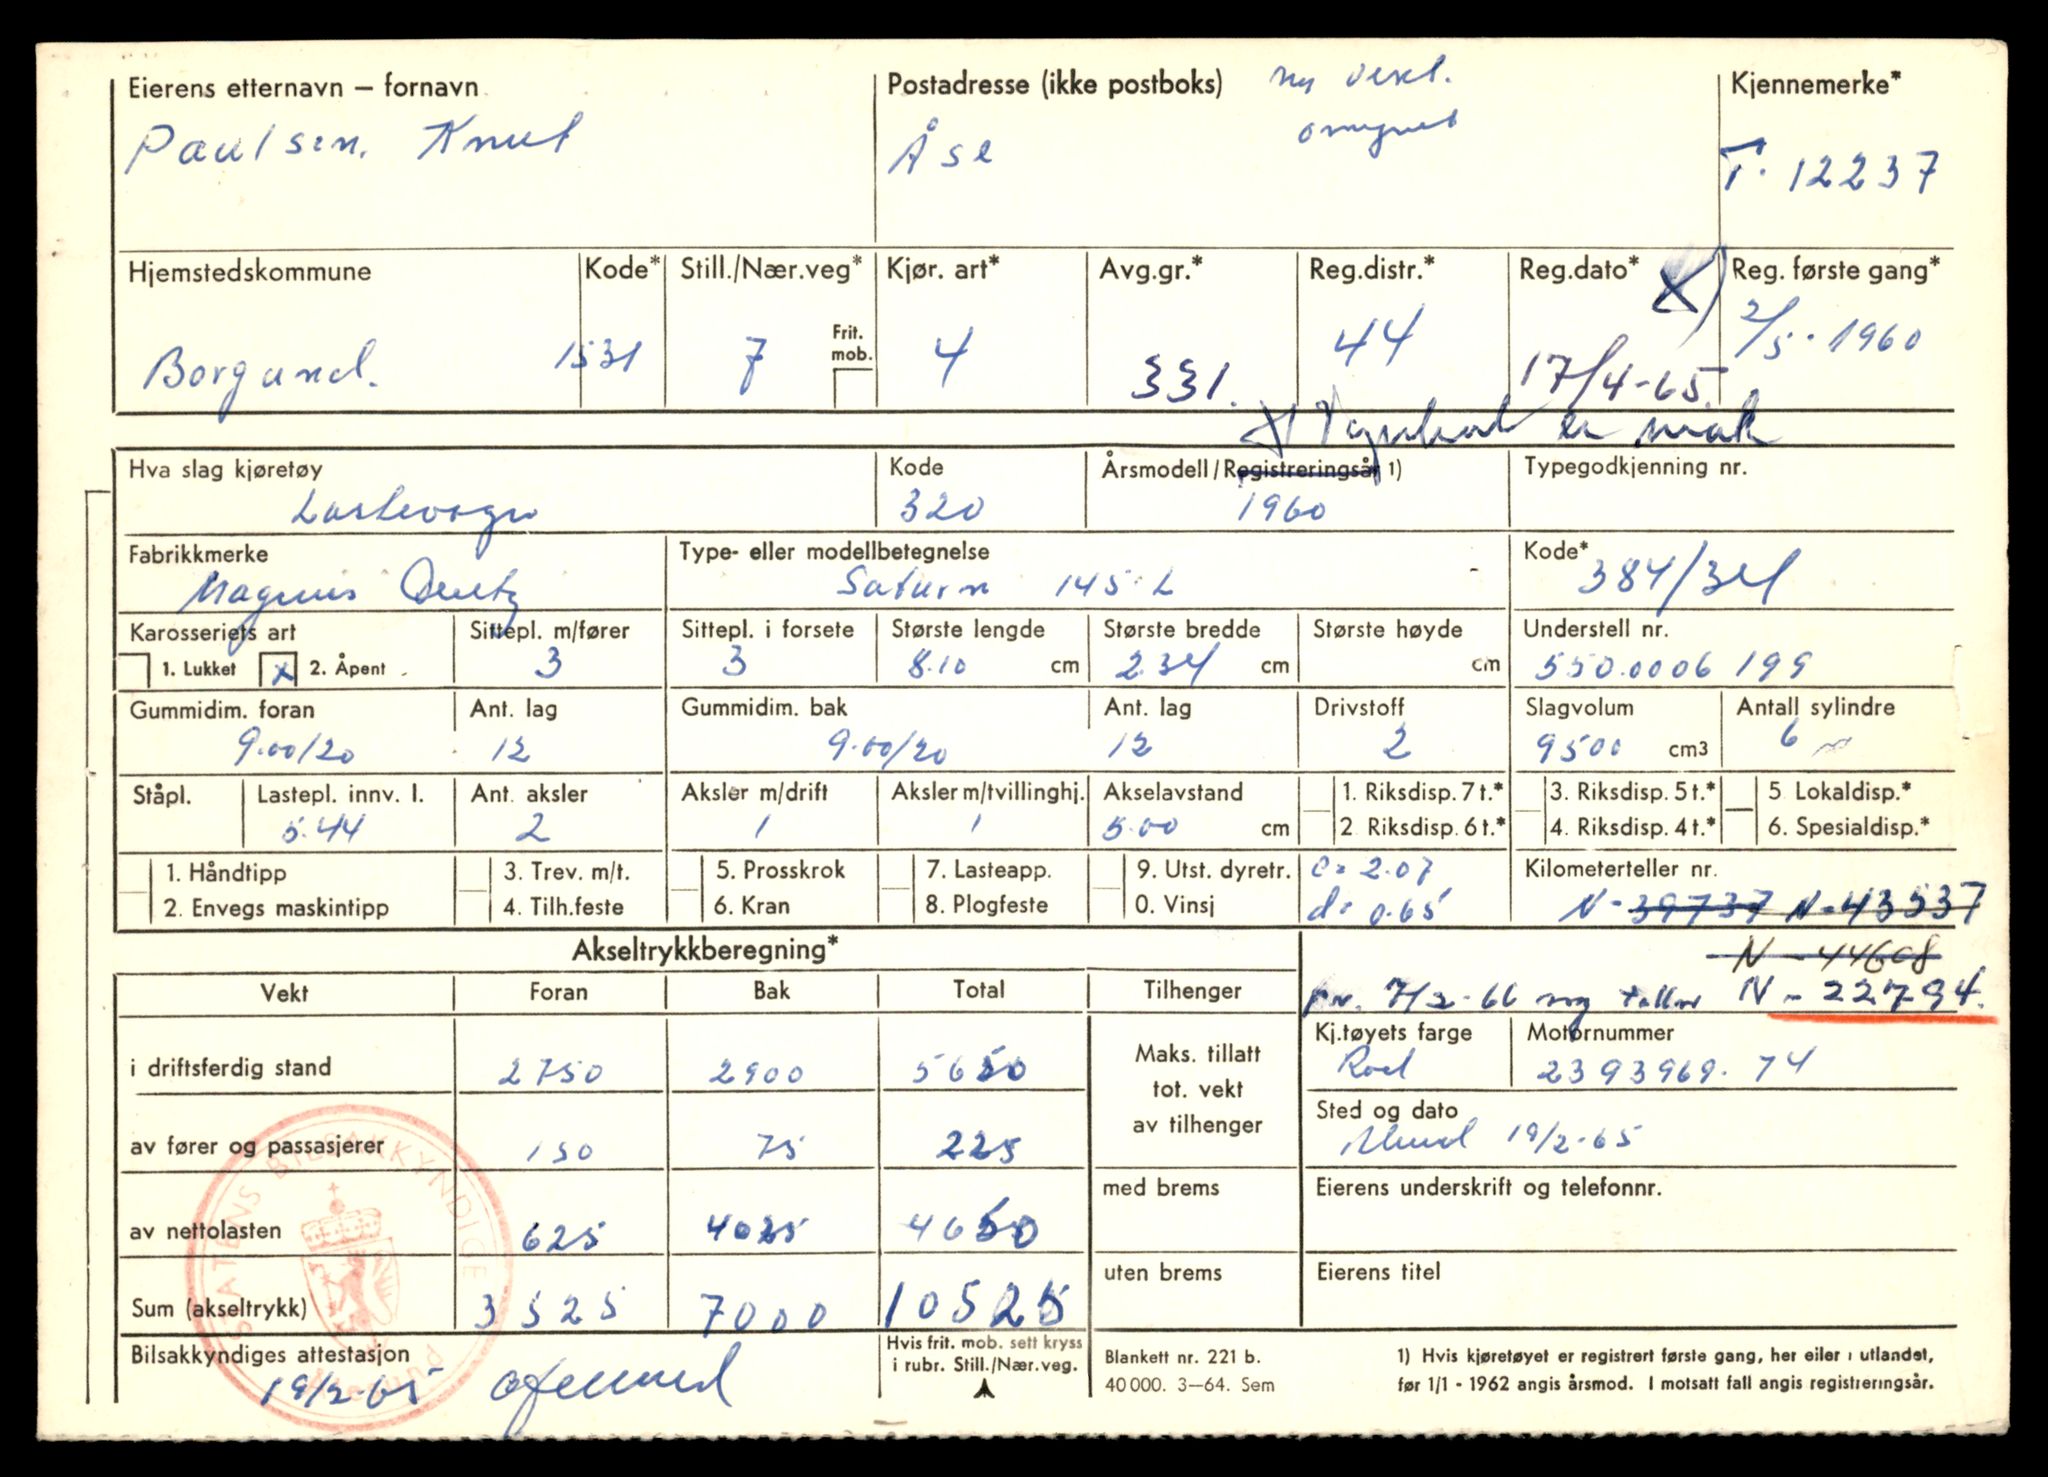 Eierens etternavn – fornavn
Paulsen, Knut
Postadresse (ikke postboks)
ny vekt.
omregnet
Åse
Kjennemerke*
T. 12237
Hjemstedskommune Kode* Still./Nær.veg* Kjør. art* Avg.gr.* Reg.distr.* Reg.dato* X) Reg. første gang*
Frit. mob.
Borgund. 1531 7 4 331. 44 17/4-65. 2/5-1960
er
Hva slag kjøretøy
Lastevogn
Kode
320
Årsmodell/Registreringsår 1)
1960
Typegodkjenning nr.
Fabrikkmerke
Magirus Deutz
Type- eller modellbetegnelse
Saturn 145 L
Kode*
384/34
Karosseriets art
1. Lukket x 2. Åpent
Sittepl. m/fører
3
Sittepl. i forsete
3
Største lengde
8.10 cm
Største bredde
2.34 cm
Største høyde
cm
Understell nr.
550.0006 199
Gummidim. foran
9.00/20
Ant. lag
12
Gummidim. bak
9.00/20
Ant. lag
12
Drivstoff
2
Slagvolum
9500 cm3
Antall sylindre
6
Ståpl.
Lastepl. innv. l.
5.44
Ant. aksler
2
Aksler m/drift
1
Aksler m/tvillinghj.
1
Akselavstand
5.00 cm
1. Riksdisp. 7 t.*
2. Riksdisp. 6 t.*
3. Riksdisp. 5 t.*
4. Riksdisp. 4 t.*
5. Lokaldisp.*
6. Spesialdisp.*
1. Håndtipp
2. Envegs maskintipp
3. Trev. m/t.
4. Tilh.feste
5. Prosskrok
6. Kran
7. Lasteapp.
8. Plogfeste
9. Utst. dyretr.
0. Vinsj
c= 2.07
d= 0.65
Kilometerteller nr.
N-39737 N-43537
N-44608
pr. 7/2-66 ny teller N-22794.
Akseltrykkberegning*
Vekt Foran Bak Total Tilhenger
i driftsferdig stand 2750 2900 5650
av fører og passasjerer 150 75 225
av nettolasten 625 4025 4650
Sum (akseltrykk) 3525 7000 10525
Maks. tillatt
tot. vekt
av tilhenger
med brems
uten brems
Kj.tøyets farge
Rød
Motornummer
2393969.74
Sted og dato
19/2-65
Eierens underskrift og telefonnr.
Eierens titel
STATENS BILSAKKYNDIGE
Bilsakkyndiges attestasjon
19/2-65
Hvis frit. mob. sett kryss
i rubr. Still./Nær.veg.
Blankett nr. 221 b.
40 000. 3–64. Sem
1) Hvis kjøretøyet er registrert første gang, her eller i utlandet,
før 1/1 - 1962 angis årsmod. I motsatt fall angis registreringsår.